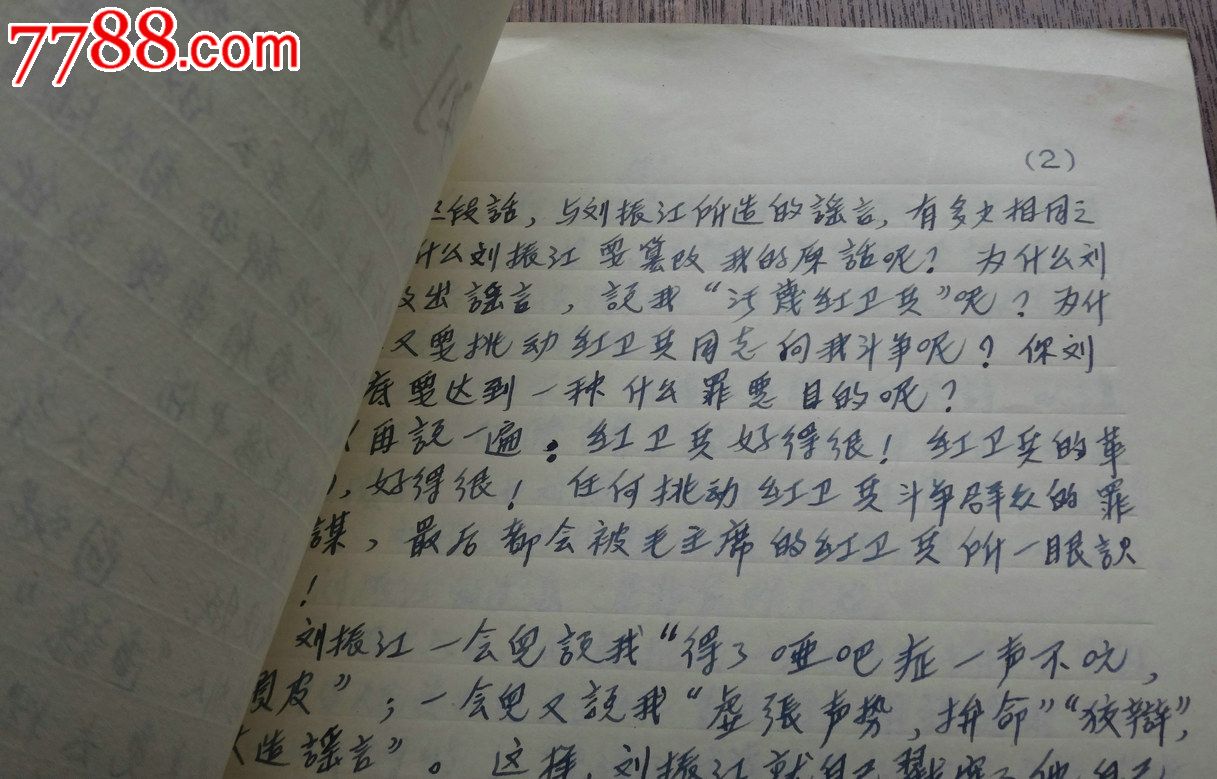 7788.com
(2)
段話，与刘振江所造的謠言，有多少相同之
什么刘振江要篡改我的原話呢？为什么刘
出謠言，説我“污蔑红卫兵”呢？为什
又要挑动红卫兵同志向我斗争呢？你刘
底要达到一种什么罪恶目的呢？
再説一遍：红卫兵好得很！红卫兵的革
，好得很！任何挑动红卫兵斗争群众的罪
謀，最后都会被毛主席的红卫兵所一眼識
！
刘振江一会兒説我“得了哑吧症一声不吭，
皮”；一会兒又説我“虚張声势，拚命”“狡辯”，
造謠言”。这样，刘振江就自己戳穿了他自己